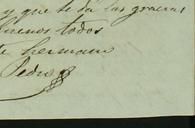 y que te da las gracias
buenos todos
te hermano
Pedro